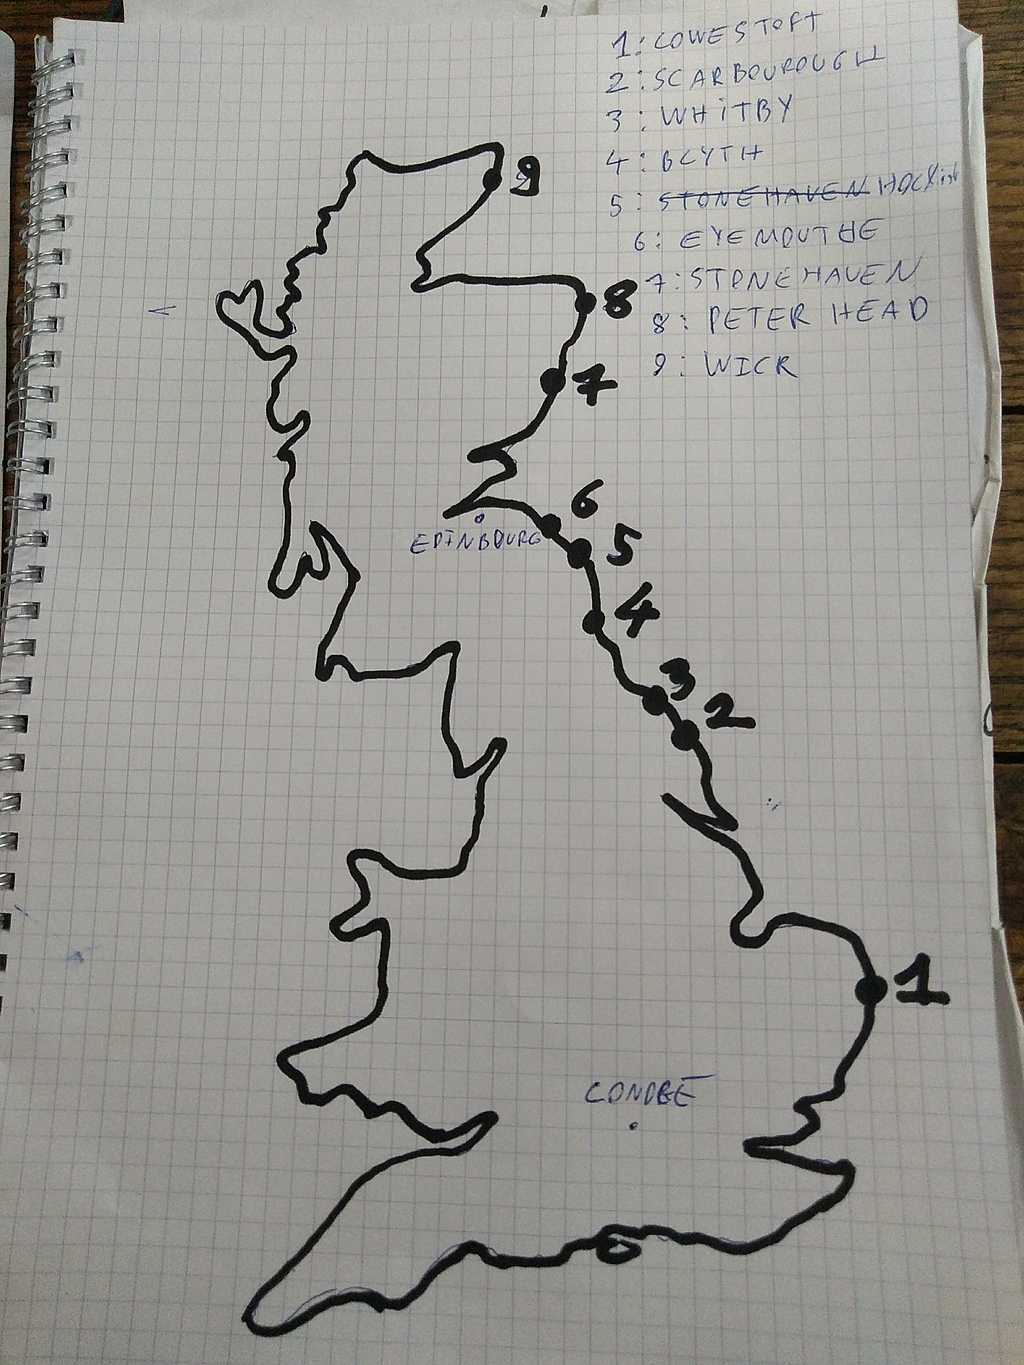 1: LOWESTOFT
2: SCARBOUROUGH
3: WHITBY
4: BLYTH
5: STONEHAVEN
6: EYEMOUTHE
7: STONEHAVEN
8: PETER HEAD
9: WICK
9
8
7
6
EDINBOURG
5
4
3
2
1
LONDRE